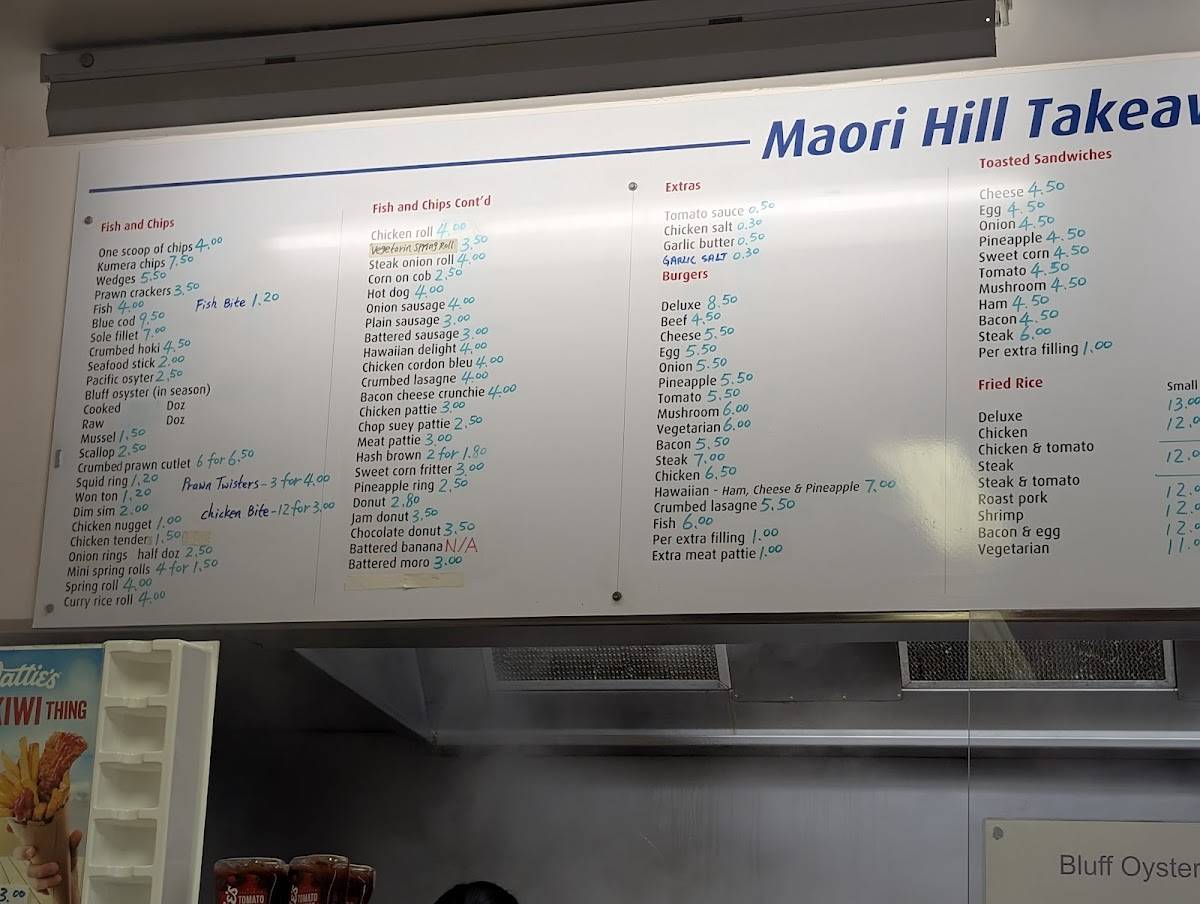 Maori Hill Takeaw
Fish and Chips
One scoop of chips 4.00
Kumera chips 7.50
Wedges 5.50
Prawn crackers 3.50
Fish 4.00 Fish Bite 1.20
Blue cod 9.50
Sole fillet 7.00
Crumbed hoki 4.50
Seafood stick 2.00
Pacific osyter 2.50
Bluff osyster (in season)
Cooked Doz
Raw Doz
Mussel 1.50
Scallop 2.50
Crumbed prawn cutlet 6 for 6.50
Squid ring 1.20 Prawn Twisters - 3 for 4.00
Won ton 1.20
Dim sim 2.00 chicken Bite - 12 for 3.00
Chicken nugget 1.00
Chicken tender 1.50
Onion rings half doz 2.50
Mini spring rolls 4 for 1.50
Spring roll 4.00
Curry rice roll 4.00
Fish and Chips Cont'd
Chicken roll 4.00
Vegetarin Spring Roll 3.50
Steak onion roll 4.00
Corn on cob 2.50
Hot dog 4.00
Onion sausage 4.00
Plain sausage 3.00
Battered sausage 3.00
Hawaiian delight 4.00
Chicken cordon bleu 4.00
Crumbed lasagne 4.00
Bacon cheese crunchie 4.00
Chicken pattie 3.00
Chop suey pattie 2.50
Meat pattie 3.00
Hash brown 2 for 1.80
Sweet corn fritter 3.00
Pineapple ring 2.50
Donut 2.80
Jam donut 3.50
Chocolate donut 3.50
Battered banana N/A
Battered moro 3.00
Extras
Tomato sauce 0.50
Chicken salt 0.30
Garlic butter 0.50
GARLIC SALT 0.30
Burgers
Deluxe 8.50
Beef 4.50
Cheese 5.50
Egg 5.50
Onion 5.50
Pineapple 5.50
Tomato 5.50
Mushroom 6.00
Vegetarian 6.00
Bacon 5.50
Steak 7.00
Chicken 6.50
Hawaiian - Ham, Cheese & Pineapple 7.00
Crumbed lasagne 5.50
Fish 6.00
Per extra filling 1.00
Extra meat pattie 1.00
Toasted Sandwiches
Cheese 4.50
Egg 4.50
Onion 4.50
Pineapple 4.50
Sweet corn 4.50
Tomato 4.50
Mushroom 4.50
Ham 4.50
Bacon 4.50
Steak 6.00
Per extra filling 1.00
Fried Rice Small
Deluxe 13.00
Chicken 12.0
Chicken & tomato
Steak 12.0
Steak & tomato
Roast pork 12.0
Shrimp 12.0
Bacon & egg 12.0
Vegetarian 11.0
attie's
KIWI THING
3.00
TOMATO
TOMATO
Bluff Oyster